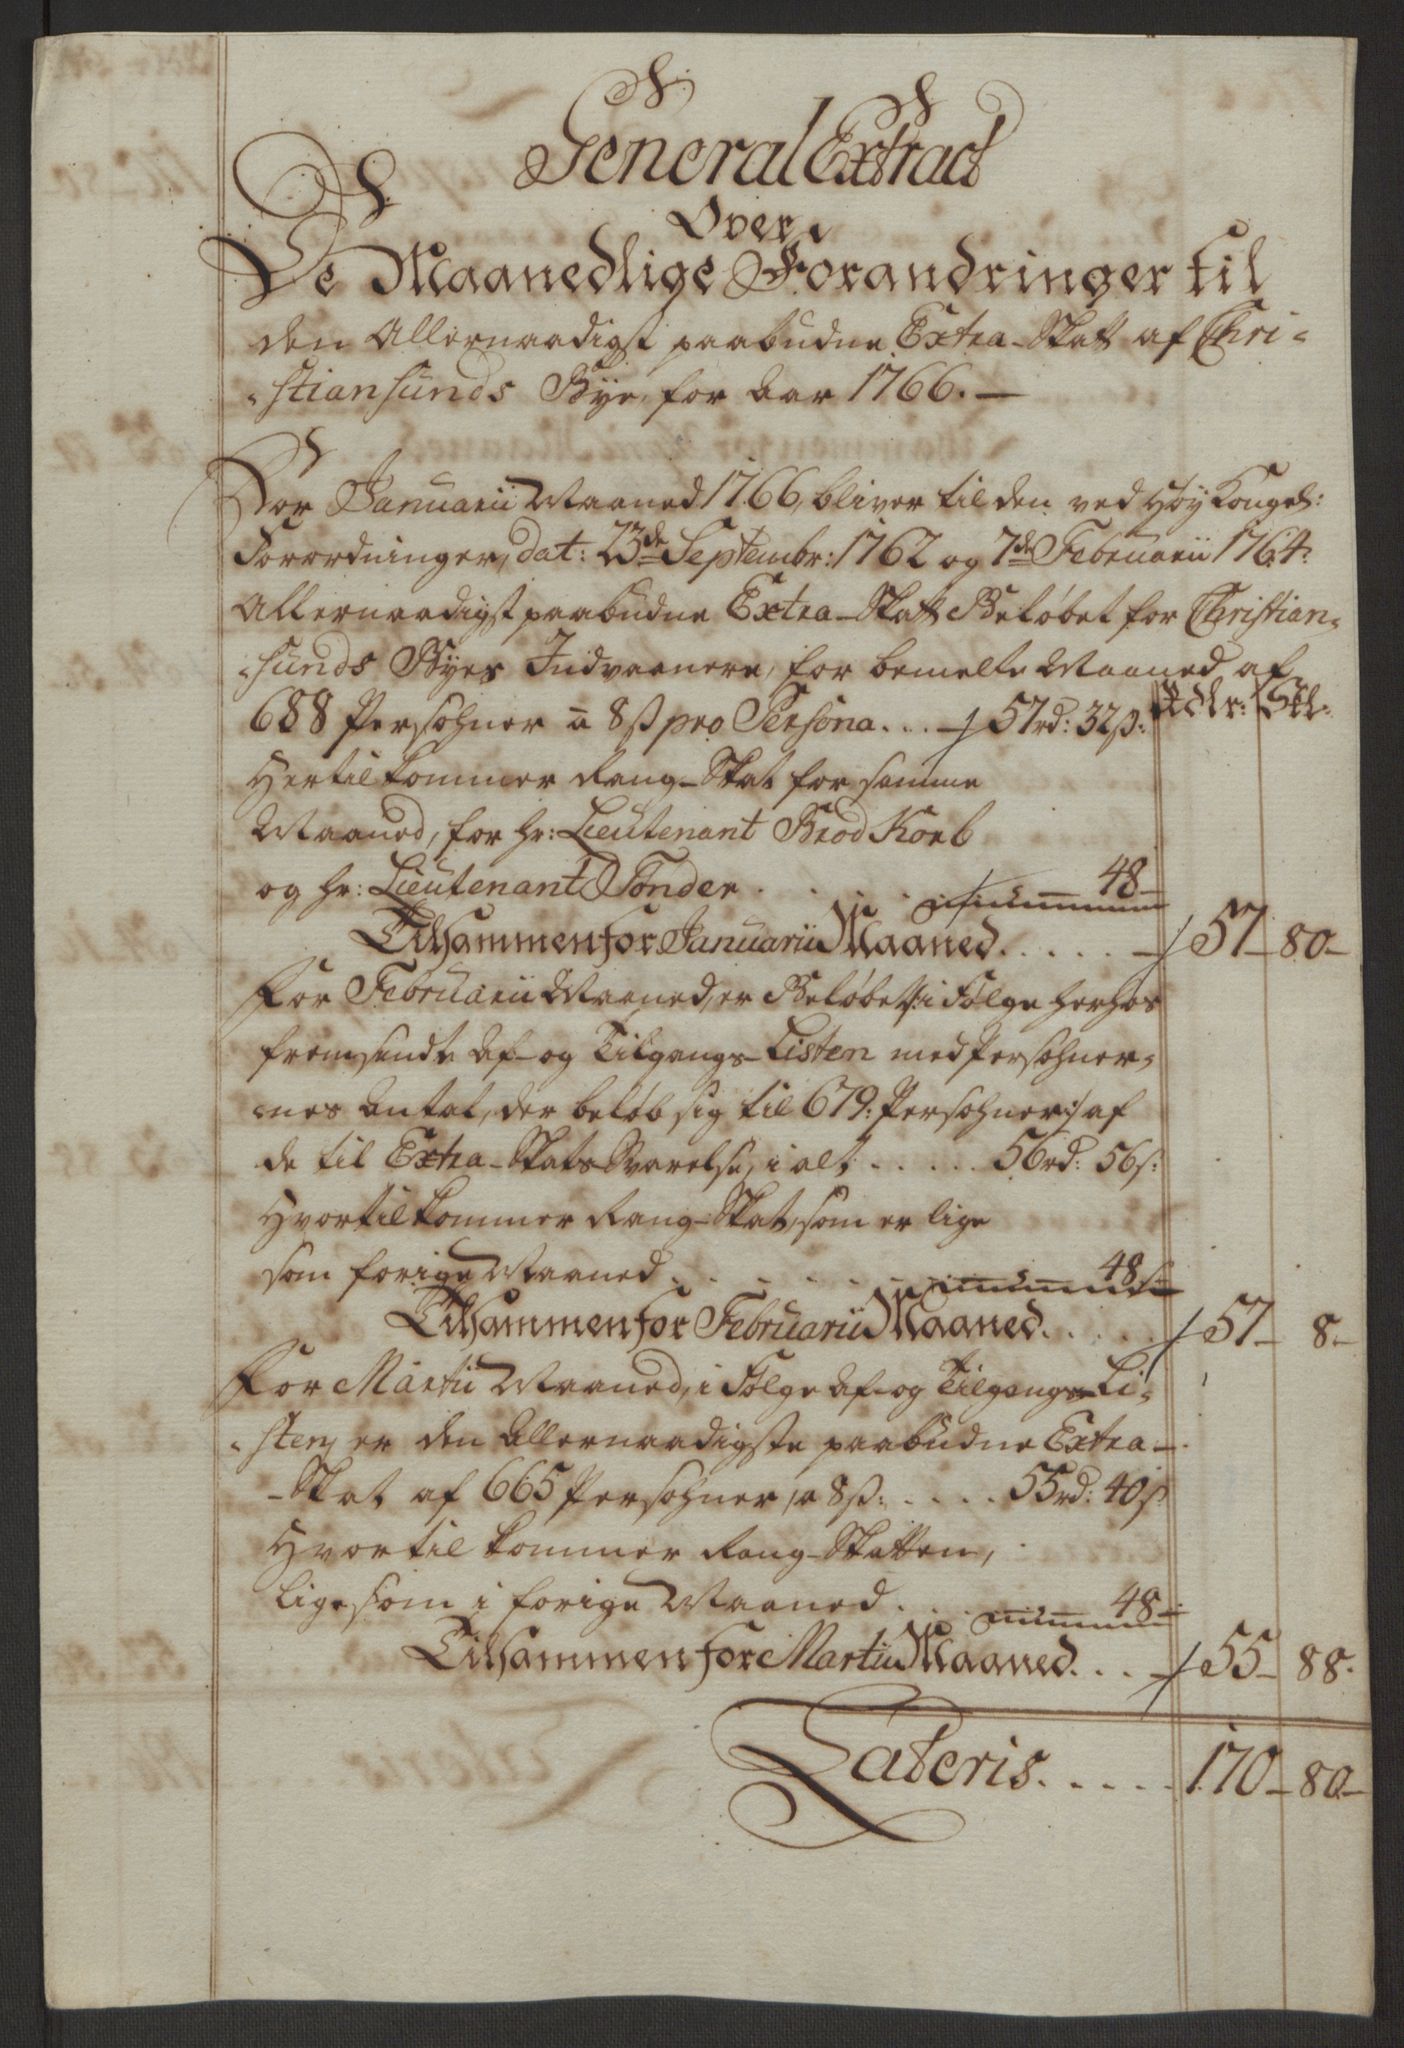 General Extract
Over
De Maanedlige Forandringer til
den Allernaadigst paabudne Extra-Skatt af Chri-
stiansunds Bye, for Aar 1766.
For Januarii Maaned 1766, bliver til den ved Høy Kongel:
Forordninger, dat: 23de Septembr: 1762 og 7de Februarii 1764:
Allernaadigst paabudne Extra-Skatt Beløbet for Christian-
sunds Byes Indvaanere, for bemelte Maaned af
688 Persohner a 8s pro Persona . . . 57rd: 32s: Rdlr: Skl:
Hertil kommer Rang-Skat for samme
Maaned, for hr: Lieutenant Brod Korb
og hr: Lieutenant Tonder . . . 48
Tilsammen for Januarii Maaned . . . . . 57 - 80 -
For Februarii Maaned, er Beløbet /: i Følge herhos
fremsendte Af- og Tilgangs-Listen med Persohner-
nes Antal, der beløb sig til 679: Persohner :/ af
de til Extra-Skats Svarelse, i alt . . . . . 56rd: 56s:
Hvortil kommer Rang-Skat, som er lige
som forige Maaned . . . . . 48s
Tilsammen for Februarii Maaned . . . . . 57 - 8 -
For Martii Maaned, i Følge Af- og Tilgangs-Li-
sten, er den Allernaadigste paabudne Extra-
-Skat af 665 Persohner, a 8s: . . . . 55rd: 40s
Hvortil kommer Rang-Skatten,
lige som i forige Maaned . . . 48
Tilsammen for Martii Maaned . . . 55 - 88.
Lateris . . . . . 170 - 80 -